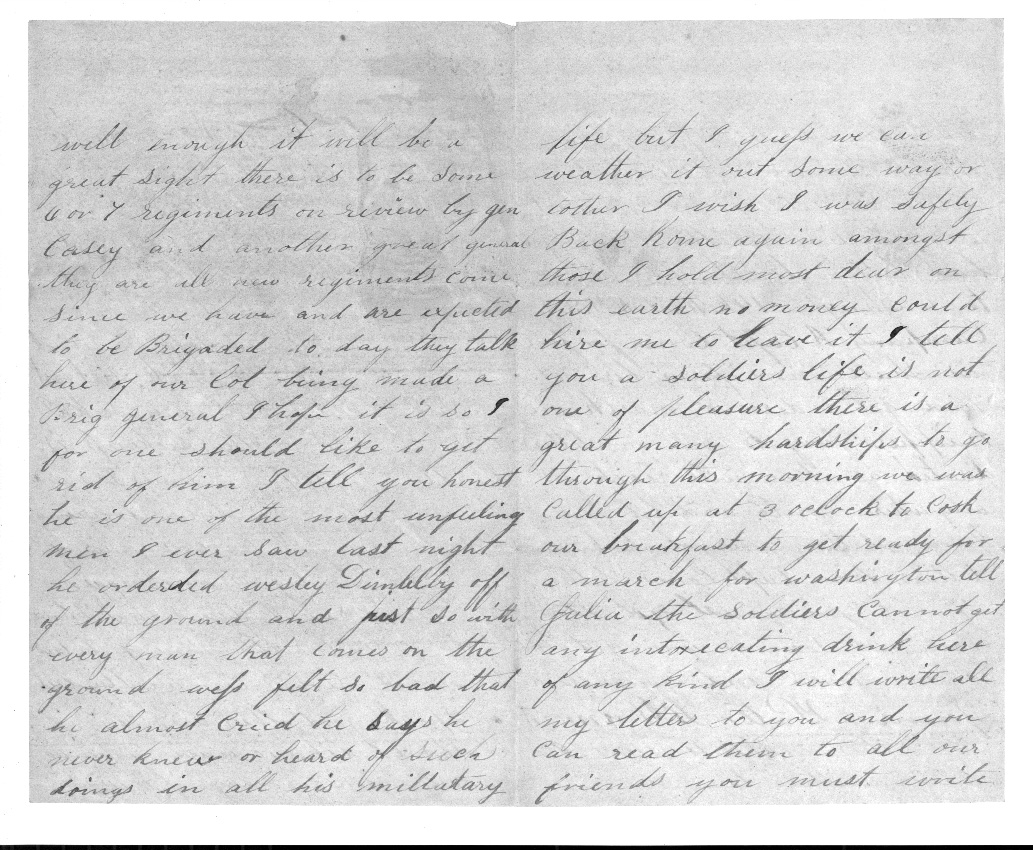 well enough it will be a
great sight there is to be some
6 or 7 regiments on review by gen
Casey and another great general
they are all new regiments come
since we have and are expected
to be Brigaded to day they talk
here of our Col being made a
Brig general I hope it is so I
for one should like to get
rid of him I tell you honest
he is one of the most unfeeling
men I ever saw last night
he orderded wesley Dimbleby off
of the ground and just so with
every man that comes on the
ground wess felt so bad that
he almost cried he says he
never knew or heard of such
doings in all his millatary
life but I guess we can
weather it out some way or
tother I wish I was safely
Back home again amongst
those I hold most dear on
this earth no money could
hire me to leave it I tell
you a soldiers life is not
one of pleasure there is a
great many hardships to go
through this morning we was
Called up at 3 oclock to Cook
our breakfast to get ready for
a march for washington tell
Julia the soldiers Cannot get
any intoxecating drink here
of any kind I will write all
my letter to you and you
Can read them to all our
friends you must write